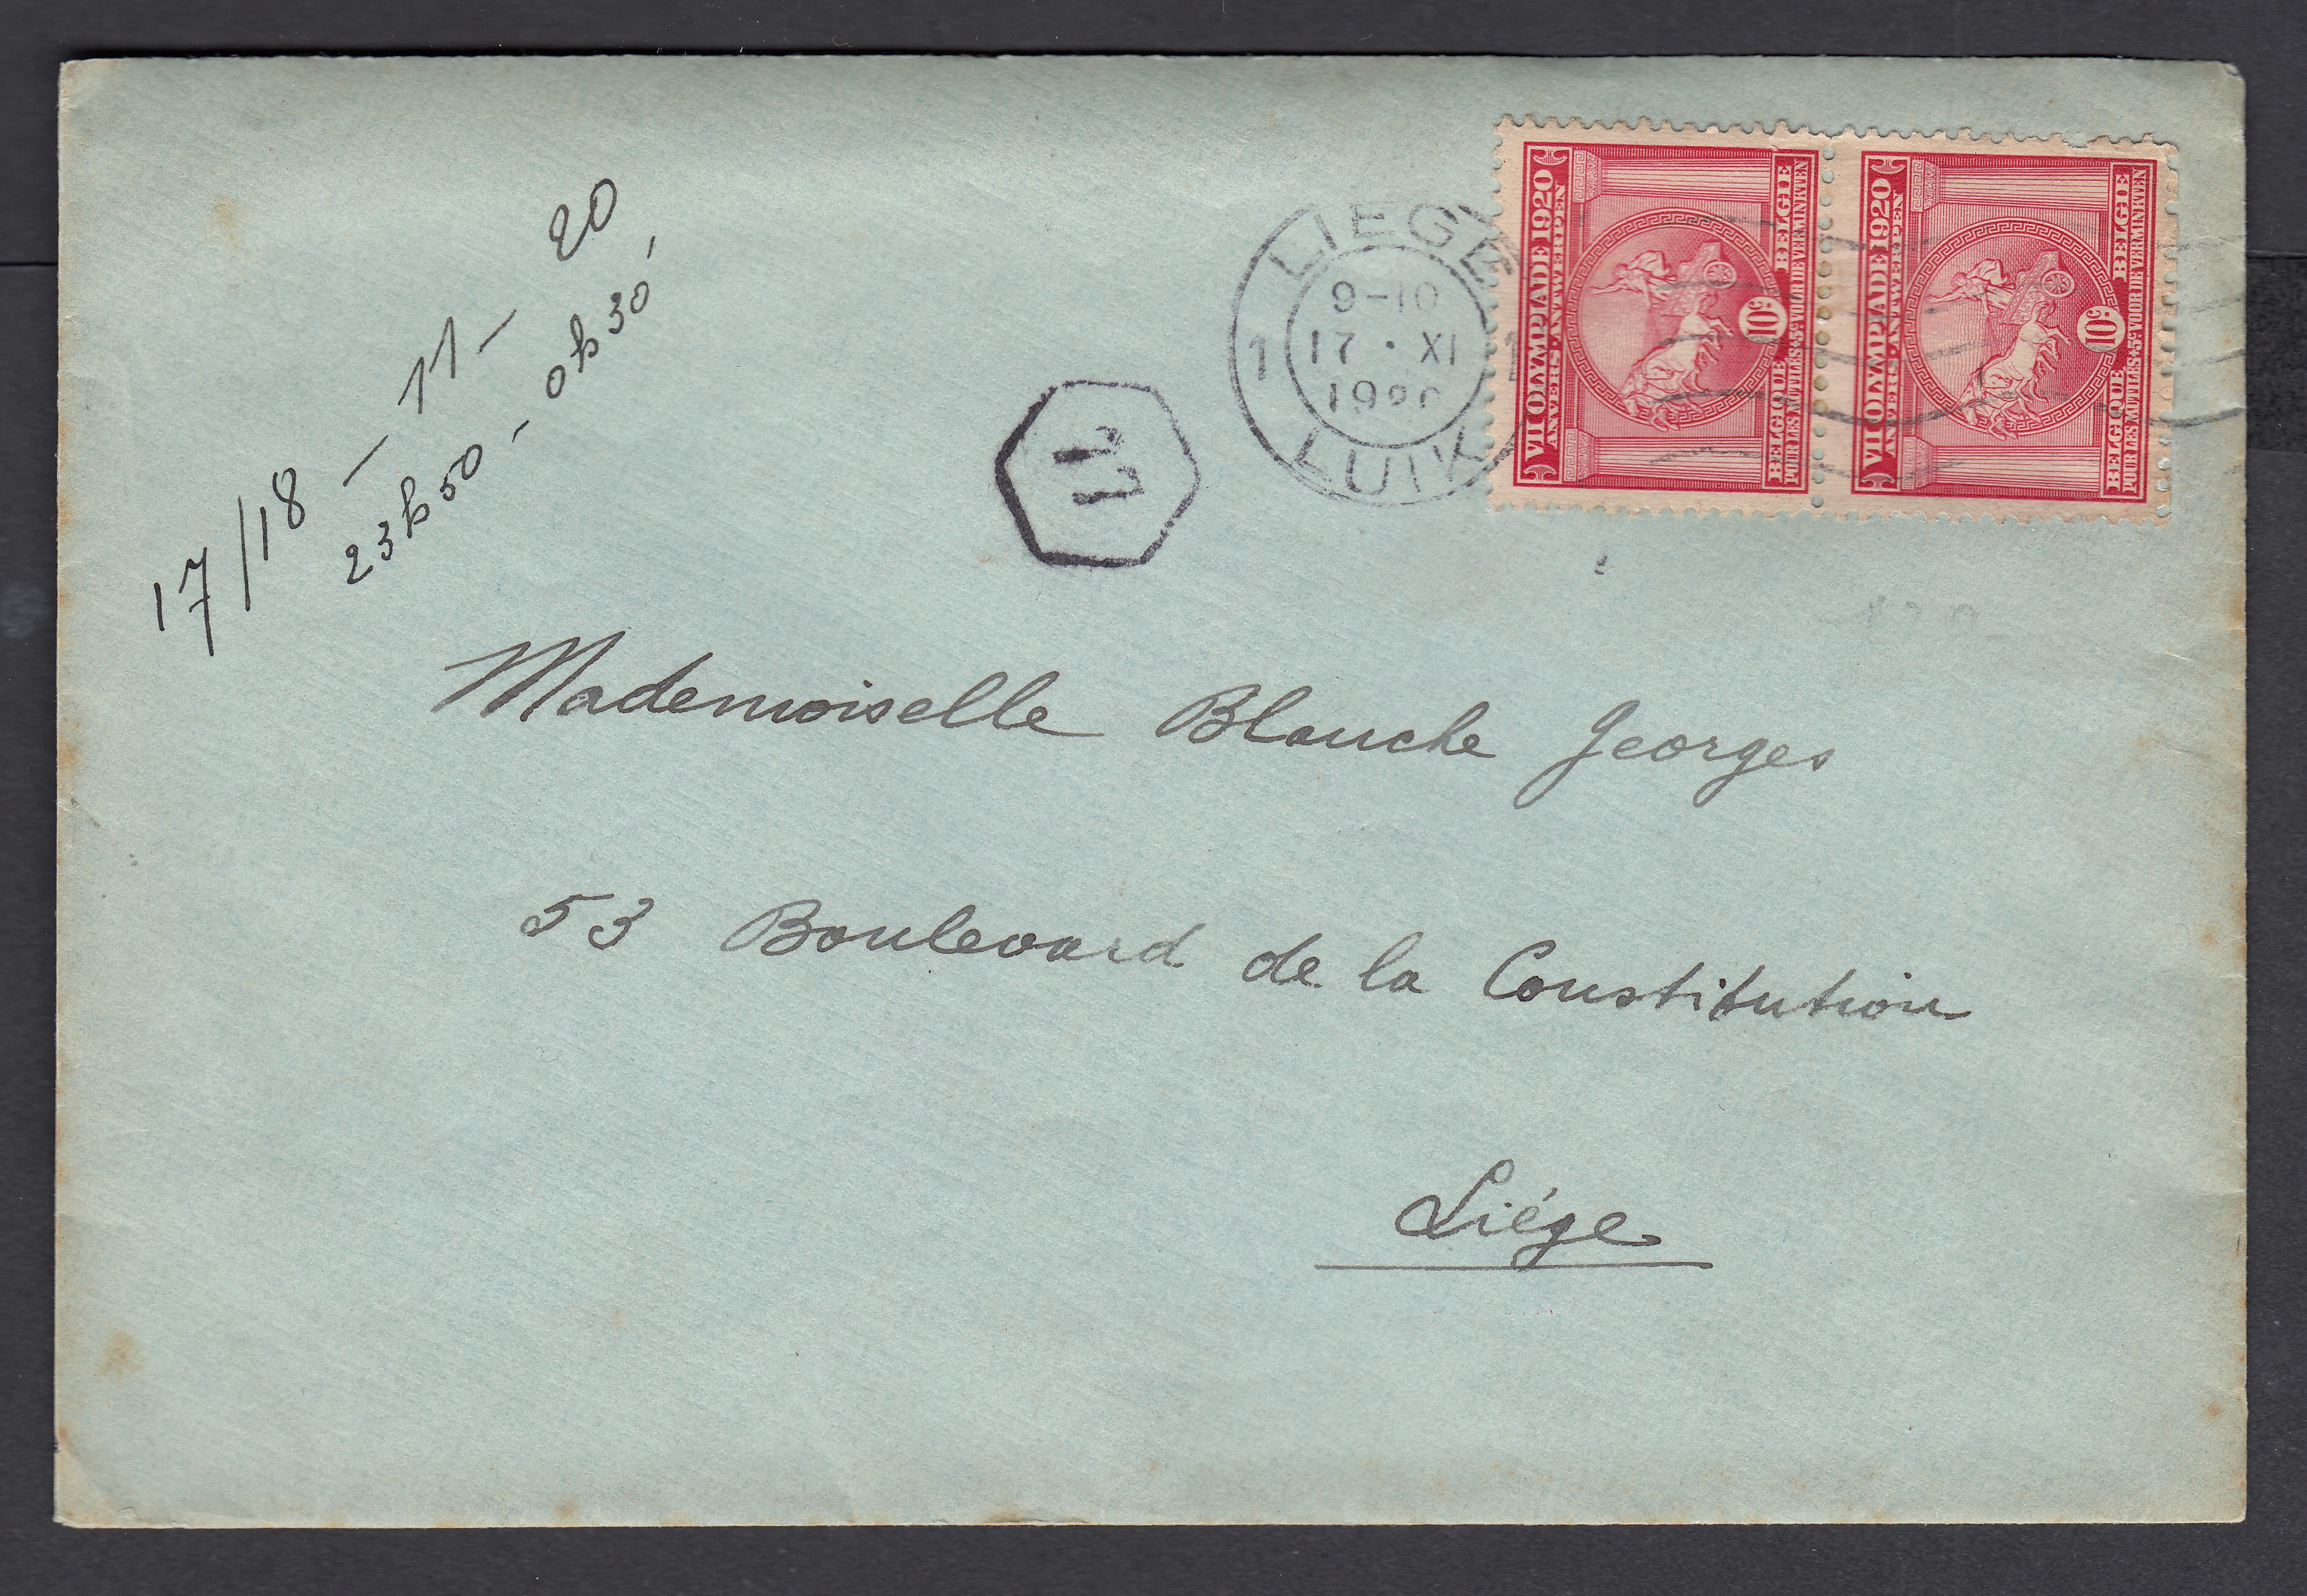 17/18 - 11 - 20
23h50 - 0h30
LIEGE
1 9-10 1
17 • XI
1920
LUIK
VII OLYMPIADE 1920
ANVERS. ANTWERPEN
10c
BELGIQUE BELGIE
POUR LES MUTILES+5c VOOR DE VERMINKTEN
VII OLYMPIADE 1920
ANVERS. ANTWERPEN
10c
BELGIQUE BELGIE
POUR LES MUTILES+5c VOOR DE VERMINKTEN
Mademoiselle Blanche Georges
53 Boulevard de la Constitution
Liége